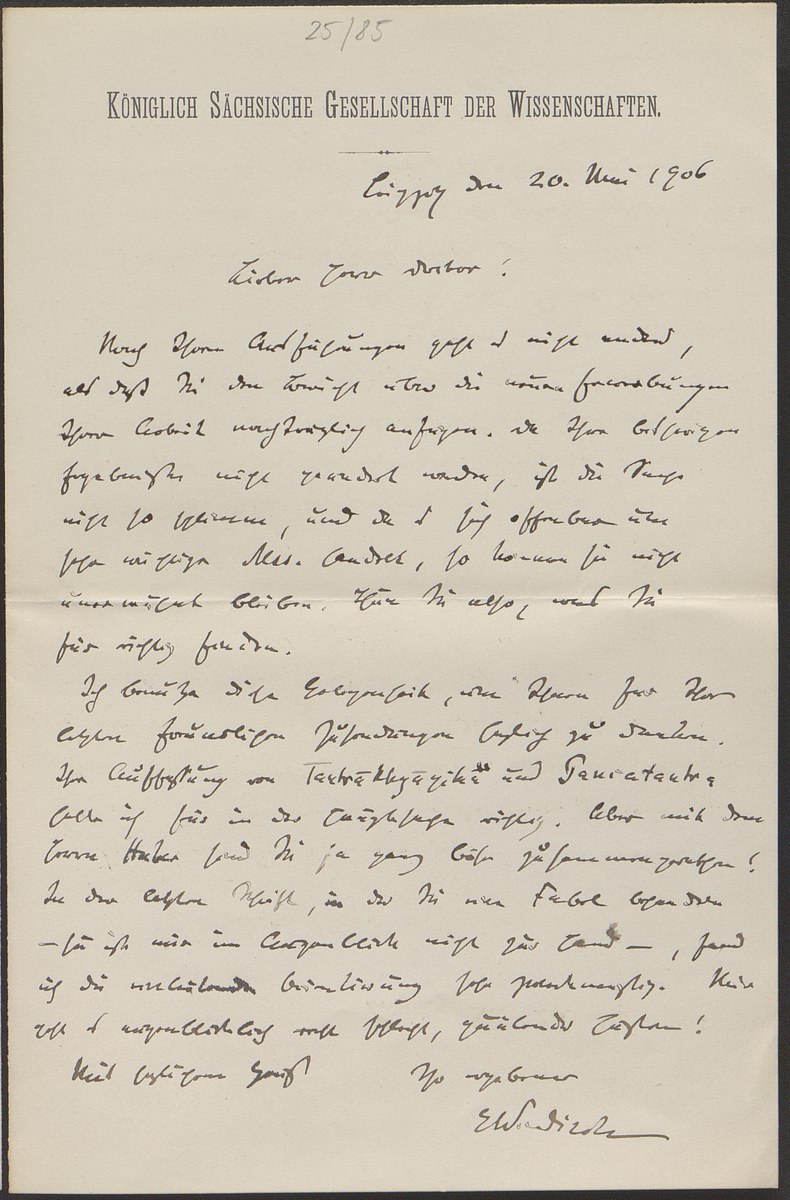 25/85
KÖNIGLICH SÄCHSISCHE GESELLSCHAFT DER WISSENSCHAFTEN.
Leipzig den 20. Mai 1906
Lieber Herr Doctor!
Nach Ihren Ausführungen geht es nicht anders,
als daß Sie den Bericht über die neuen Erwerbungen
Ihrer Arbeit nachträglich anfügen. Da Ihre bisherigen
Ergebnisse nicht geändert werden, ist die Sache
nicht so schlimm, und da es sich offenbar um
sehr wichtige Mss. handelt, so können sie nicht
unerwähnt bleiben. Thun Sie also, was Sie
für richtig finden.
Ich benutze diese Gelegenheit, um Ihnen für Ihre
letzten freundlichen Zusendungen herzlich zu danken.
Ihre Auffassung von Tantrākhyāyika und Pancatantra
halte ich für in der Hauptsache richtig. Aber mit dem
Herrn Huber sind Sie ja ganz böse zusammengerathen!
In der letzten Schrift, in der Sie eine Fabel
— sie ist mir im Augenblick nicht zur Hand —, fand
ich die einleitende Bemerkung sehr zweckmäßig. Mir
geht es augenblicklich recht schlecht, quälender Husten!
Mit herzlichem Gruß Ihr ergebener
EWindisch